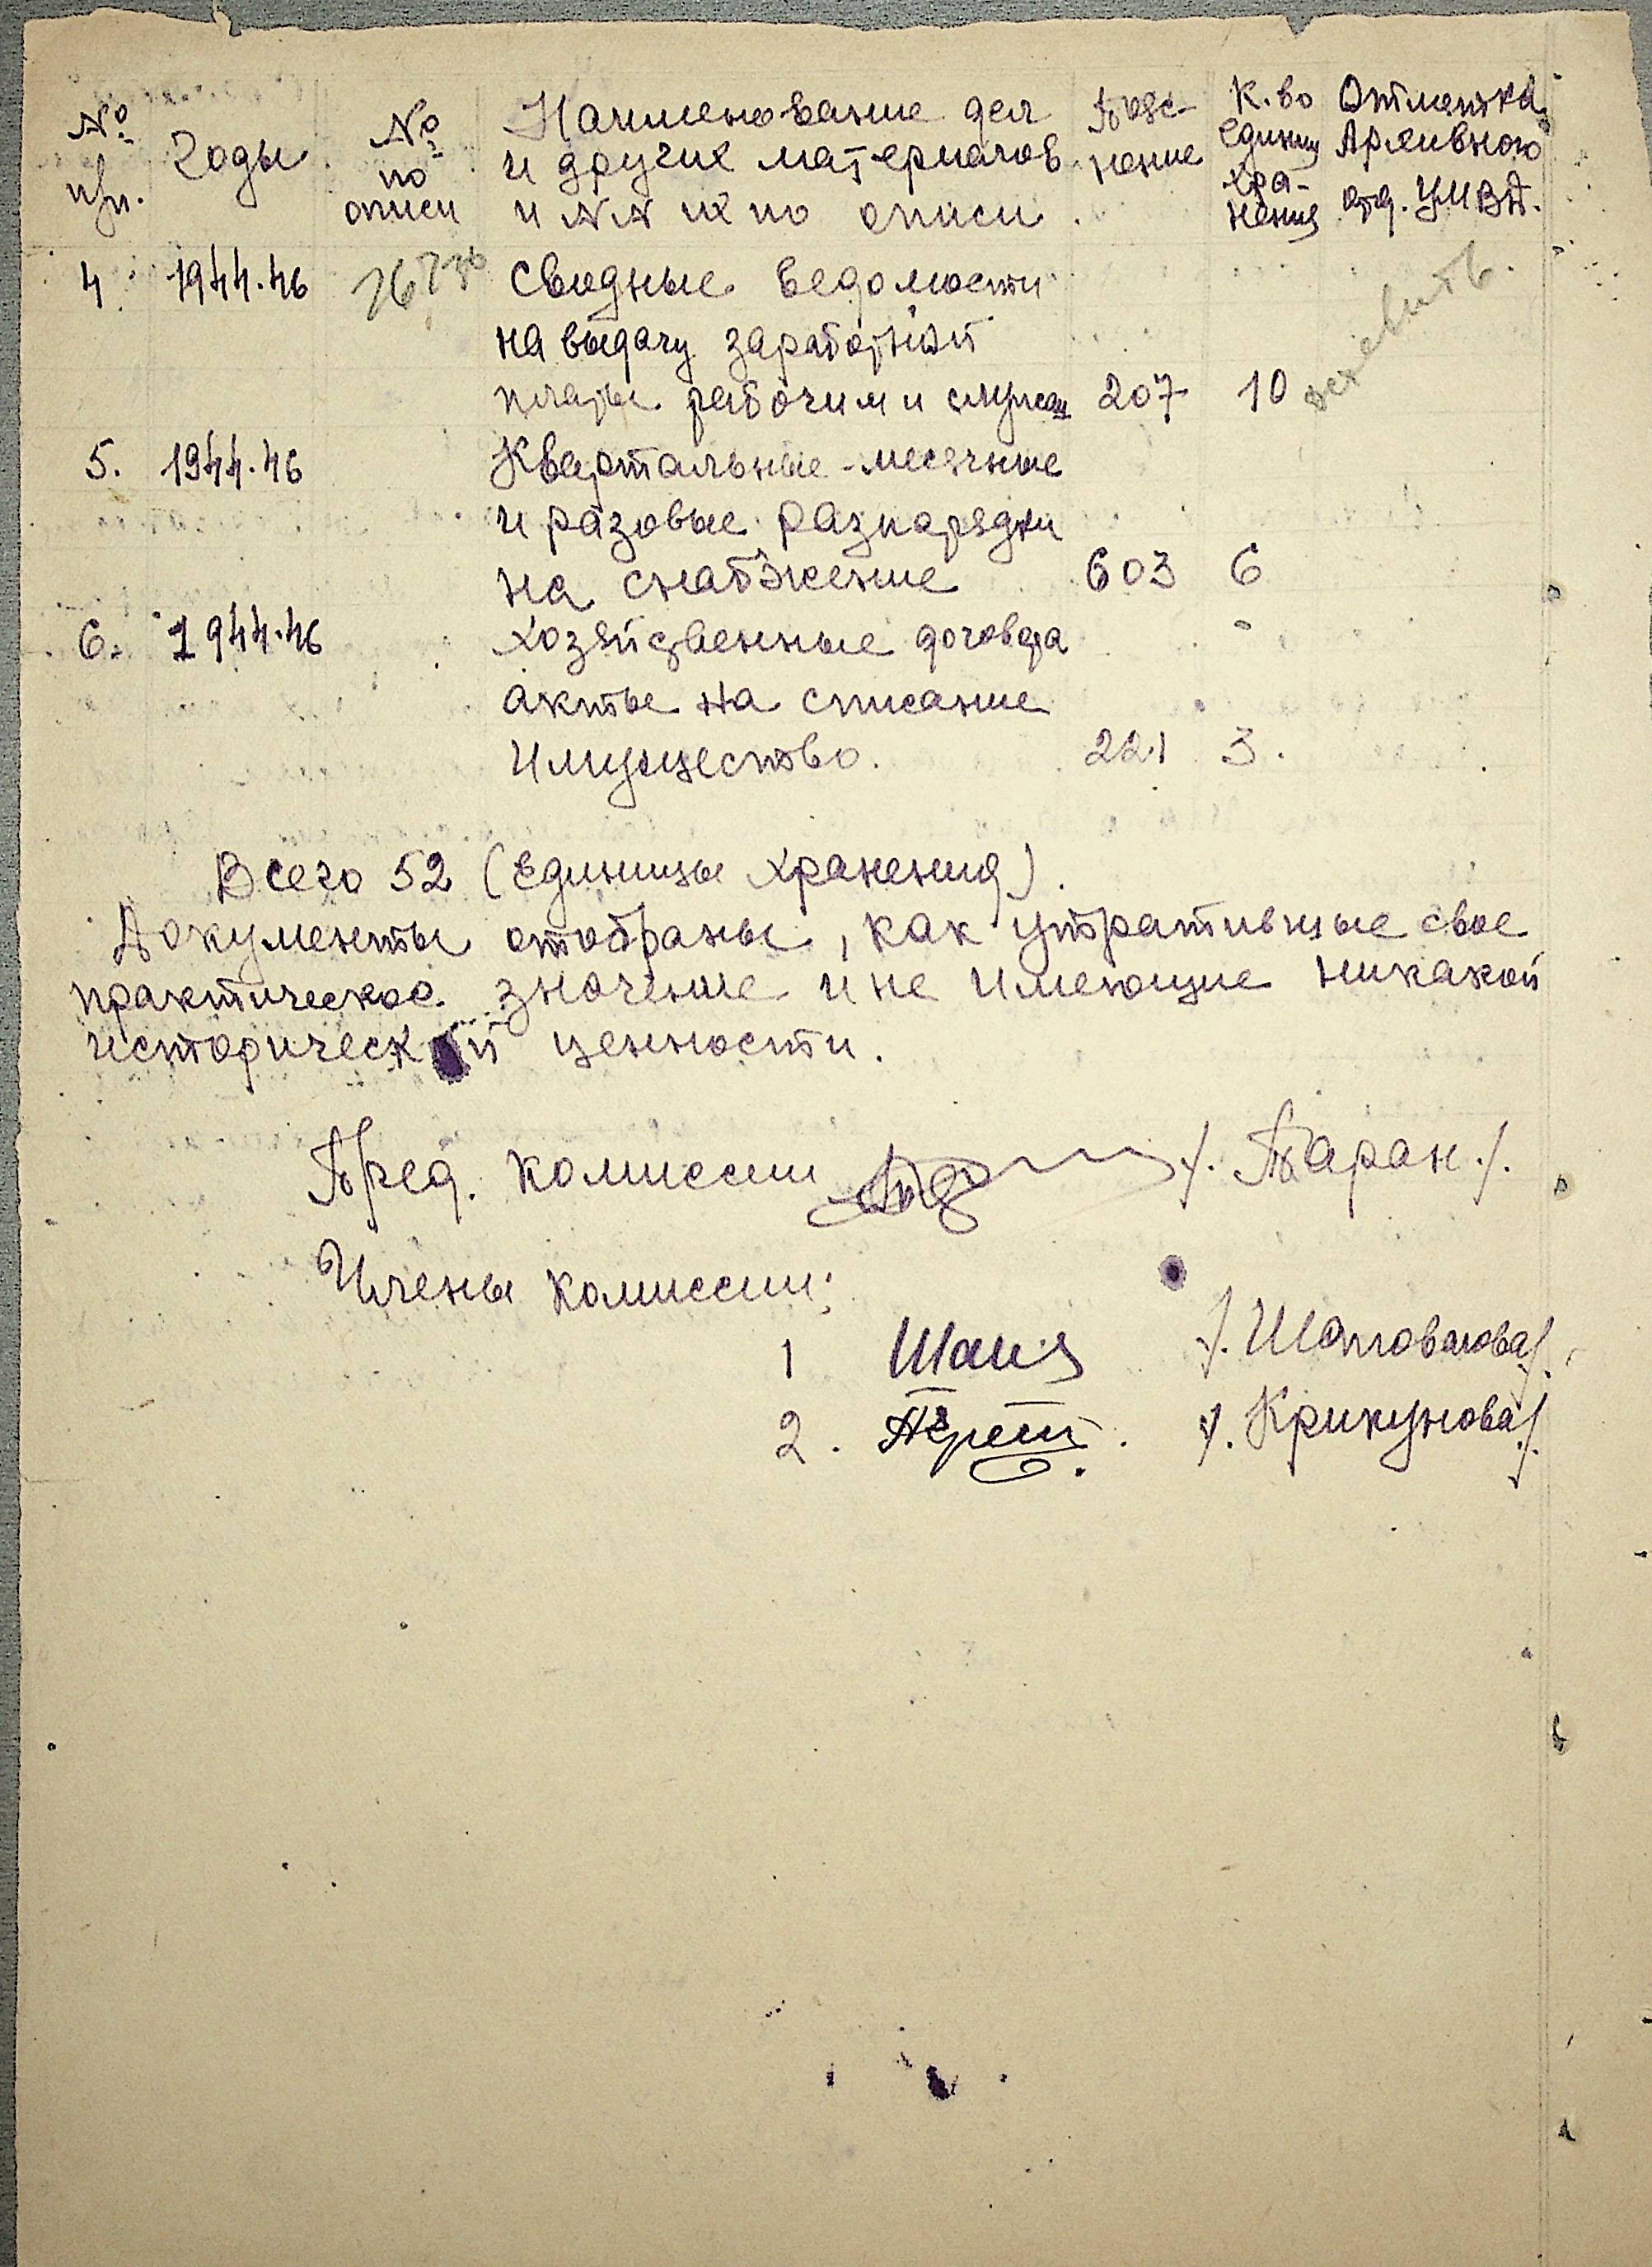 № п/п. Годы № по описи Наименование дел и других материалов и NN их по описи. Пояс-нение К.во единиц хра-нения Отметка Архивного отд. УМВД.
4. 1944.46 Сводные ведомости
на выдачу заработной
платы рабочим и служащ 207 10 оставить.
5. 1944.46 Квартальные-месячные
и разовые разнарядки
на снабжение 603 6
6. 1944.46 Хозяйственные договора
акты на списание
Имущество. 221 3.
Всего 52 (единицы хранения).
Документы отобраны, как утратившые свое
практическое значение и не имеющие никакой
исторической ценности.
Пред. комиссии /. Таран./.
Члены комиссии:
1 Шап /. Шаповалова/.
2. /. Крикунова/.